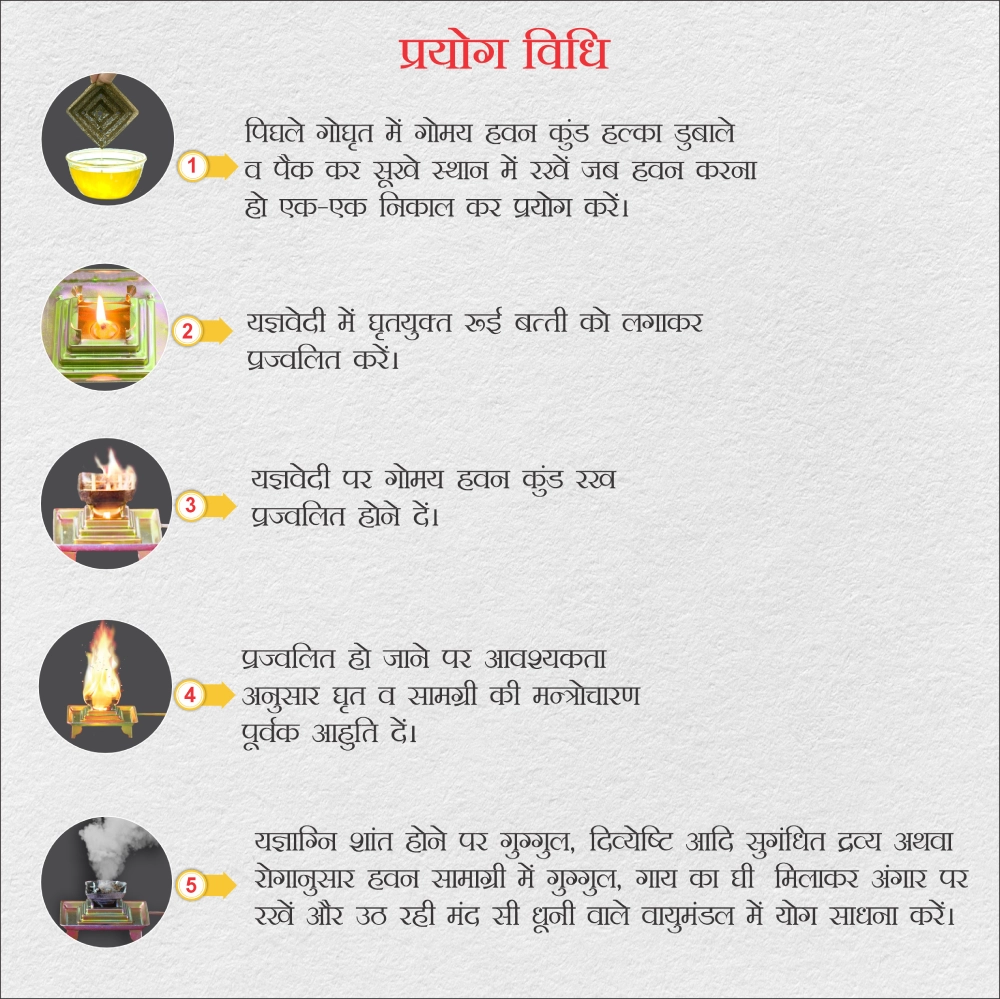 प्रयोग विधि
1
पिघले गोघृत में गोमय हवन कुंड हल्का डुबाले
व पैक कर सूखे स्थान में रखें जब हवन करना
हो एक-एक निकाल कर प्रयोग करें।
2
यज्ञवेदी में घृतयुक्त रूई बत्ती को लगाकर
प्रज्वलित करें।
3
यज्ञवेदी पर गोमय हवन कुंड रख
प्रज्वलित होने दें।
4
प्रज्वलित हो जाने पर आवश्यकता
अनुसार घृत व सामग्री की मन्त्रोचारण
पूर्वक आहुति दें।
5
यज्ञाग्नि शांत होने पर गुग्गुल, दिव्येष्टि आदि सुगंधित द्रव्य अथवा
रोगानुसार हवन सामाग्री में गुग्गुल, गाय का घी मिलाकर अंगार पर
रखें और उठ रही मंद सी धूनी वाले वायुमंडल में योग साधना करें।